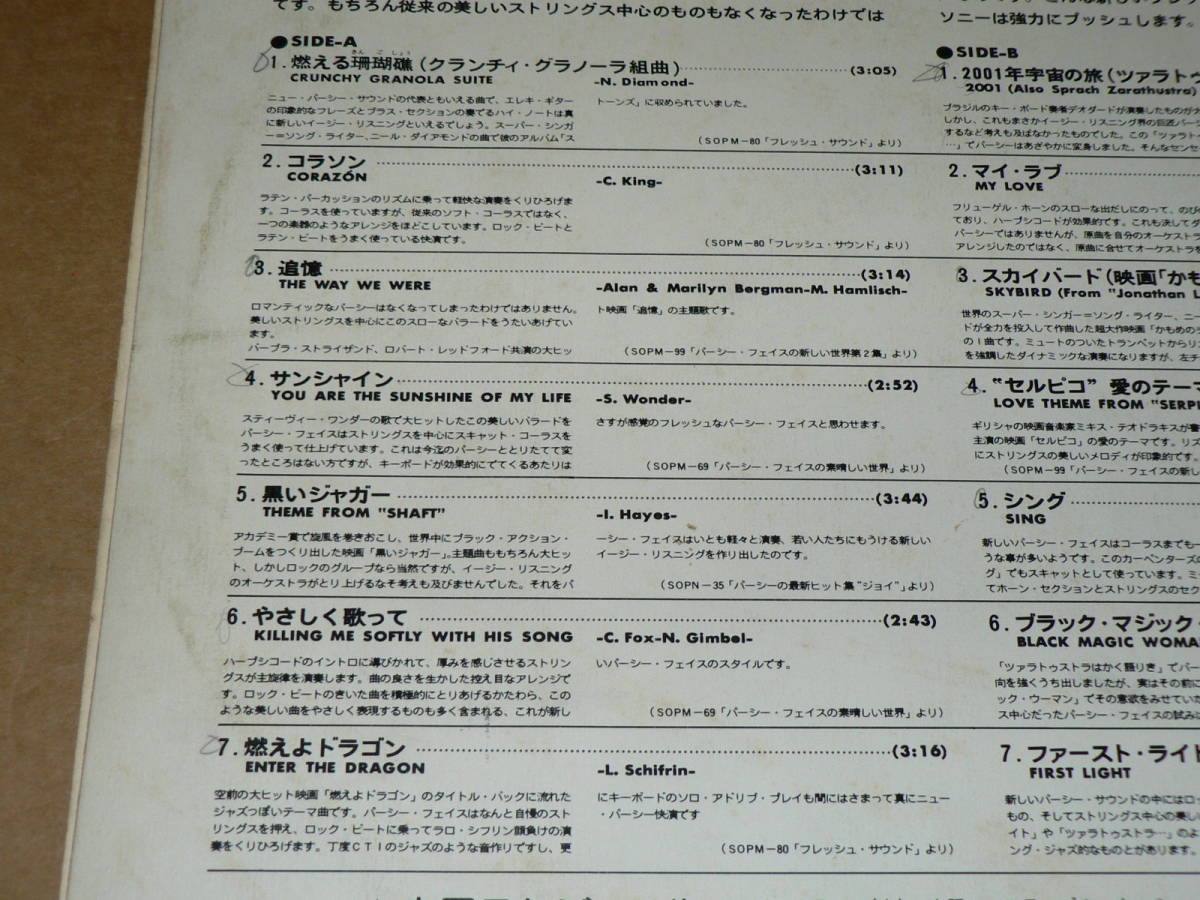 です。もちろん従来の美しいストリングス中心のものもなくなったわけでは
●SIDE-A
1. 燃える珊瑚礁(クランチィ・グラノーラ組曲)……(3:05)
CRUNCHY GRANOLA SUITE -N. Diamond-
ニュー・パーシー・サウンドの代表ともいえる曲で、エレキ・ギター
の印象的なフレーズとブラス・セクションの奏でるハイ・ノートは真
に新しいイージー・リスニングといえるでしょう。スーパー・シンガ
ー＝ソング・ライター、ニール・ダイアモンドの曲で彼のアルバム「ス
トーンズ」に収められていました。
(SOPM−80「フレッシュ・サウンド」より)
2. コラソン……(3:11)
CORAZÓN -C. King-
ラテン・パーカッションのリズムに乗って軽快な演奏をくりひろげま
す。コーラスを使っていますが、従来のソフト・コーラスではなく、
一つの楽器のようなアレンジをほどこしています。ロック・ビートと
ラテン・ビートをうまく使っている快演です。
(SOPM−80「フレッシュ・サウンド」より)
3. 追憶……(3:14)
THE WAY WE WERE -Alan & Marilyn Bergman-M. Hamlisch-
ロマンティックなパーシーはなくなってしまったわけではありません。
美しいストリングスを中心にこのスローなバラードをうたいあげてい
ます。
バーブラ・ストライザンド、ロバート・レッドフォード共演の大ヒッ
ト映画「追憶」の主題歌です。
(SOPM−99「パーシー・フェイスの新しい世界第2集」より)
4. サンシャイン……(2:52)
YOU ARE THE SUNSHINE OF MY LIFE -S. Wonder-
スティーヴィー・ワンダーの歌で大ヒットしたこの美しいバラードを
パーシー・フェイスはストリングスを中心にスキャット・コーラスを
うまく使って仕上げています。これは今迄のパーシーととりたてて変
ったところはない方ですが、キーボードが効果的にでてくるあたりは
さすが感覚のフレッシュなパーシー・フェイスと思わせます。
(SOPM−69「パーシー・フェイスの素晴しい世界」より)
5. 黒いジャガー……(3:44)
THEME FROM "SHAFT" -I. Hayes-
アカデミー賞で旋風を巻きおこし、世界中にブラック・アクション・
ブームをつくり出した映画「黒いジャガー」。主題曲ももちろん大ヒッ
ト、しかしロックのグループなら当然ですが、イージー・リスニング
のオーケストラがとり上げるなぞ考えも及びませんでした。それをパ
ーシー・フェイスはいとも軽々と演奏、若い人たちにもうける新しい
イージー・リスニングを作り出したのです。
(SOPN−35「パーシーの最新ヒット集"ジョイ"」より)
6. やさしく歌って……(2:43)
KILLING ME SOFTLY WITH HIS SONG -C. Fox-N. Gimbel-
ハープシコードのイントロに導びかれて、厚みを感じさせるストリン
グスが主旋律を演奏します。曲の良さを生かした控え目なアレンジで
す。ロック・ビートのきいた曲を積極的にとりあげるかたわら、この
ような美しい曲をやさしく表現するものも多く含まれる、これが新し
いパーシー・フェイスのスタイルです。
(SOPM−69「パーシー・フェイスの素晴しい世界」より)
7. 燃えよドラゴン……(3:16)
ENTER THE DRAGON -L. Schifrin-
空前の大ヒット映画「燃えよドラゴン」のタイトル・バックに流れた
ジャズっぽいテーマ曲です。パーシー・フェイスはなんと自慢のスト
リングスを押え、ロック・ビートに乗ってラロ・シフリン顔負けの演
奏をくりひろげます。丁度CTIのジャズのような音作りですし、更
にキーボードのソロ・アドリブ・プレイも間にはさまって真にニュー
・パーシー快演です
(SOPM−80「フレッシュ・サウンド」より)
ソニーは強力にプッシュします。
●SIDE-B
1. 2001年宇宙の旅(ツァラトゥ
2001 (Also Sprach Zarathustra)
ブラジルのキー・ボード奏者デオダードが演奏したものがデ
しかし、これもまさかイージー・リスニング界の巨匠パーシ
するなど考えも及ばなかったものでした。この「ツァラトゥ
…」でパーシーはあざやかに変身しました。そんなセンセー
2. マイ・ラブ
MY LOVE
フリューゲル・ホーンのスローな出だしにのって、のびや
ており、ハープシコードが効果的です。これも決してダ
パーシーではありませんが、原曲を自分のオーケストラ
アレンジしたのではなく、原曲に合せてオーケストラを
3. スカイバード(映画「かも
SKYBIRD (From "Jonathan L
世界のスーパー・シンガー＝ソング・ライター、ニー
ドが全力を投入して作曲した超大作映画「かもめのジ
の1曲です。ミュートのついたトランペットからリズ
を強調したダイナミックな演奏になりますが、左チ
4. "セルピコ" 愛のテーマ
LOVE THEME FROM "SERPI
ギリシャの映画音楽家ミキス・テオドラキスが書
主演の映画「セルピコ」の愛のテーマです。リズ
にストリングスの美しいメロディが印象的です。
(SOPM−99「パーシー・フェイスの新し
5. シング
SING
新しいパーシー・フェイスはコーラスまでも一
うな事が多いようです。このカーペンターズの
グ」でもスキャットとして使っています。ミ
てホーン・セクションとストリングスのセク
6. ブラック・マジック・
BLACK MAGIC WOMA
「ツァラトゥストラはかく語りき」でパー
向を強くうち出しましたが、実はその前に
ック・ウーマン」でその意欲をみせていた
ス中心だったパーシー・フェイスの試み
7. ファースト・ライト
FIRST LIGHT
新しいパーシー・サウンドの中にはロ
もの、そしてストリングス中心の美し
イト」や「ツァラトゥストラ…」のよ
ング・ジャズ的なものとがあります。